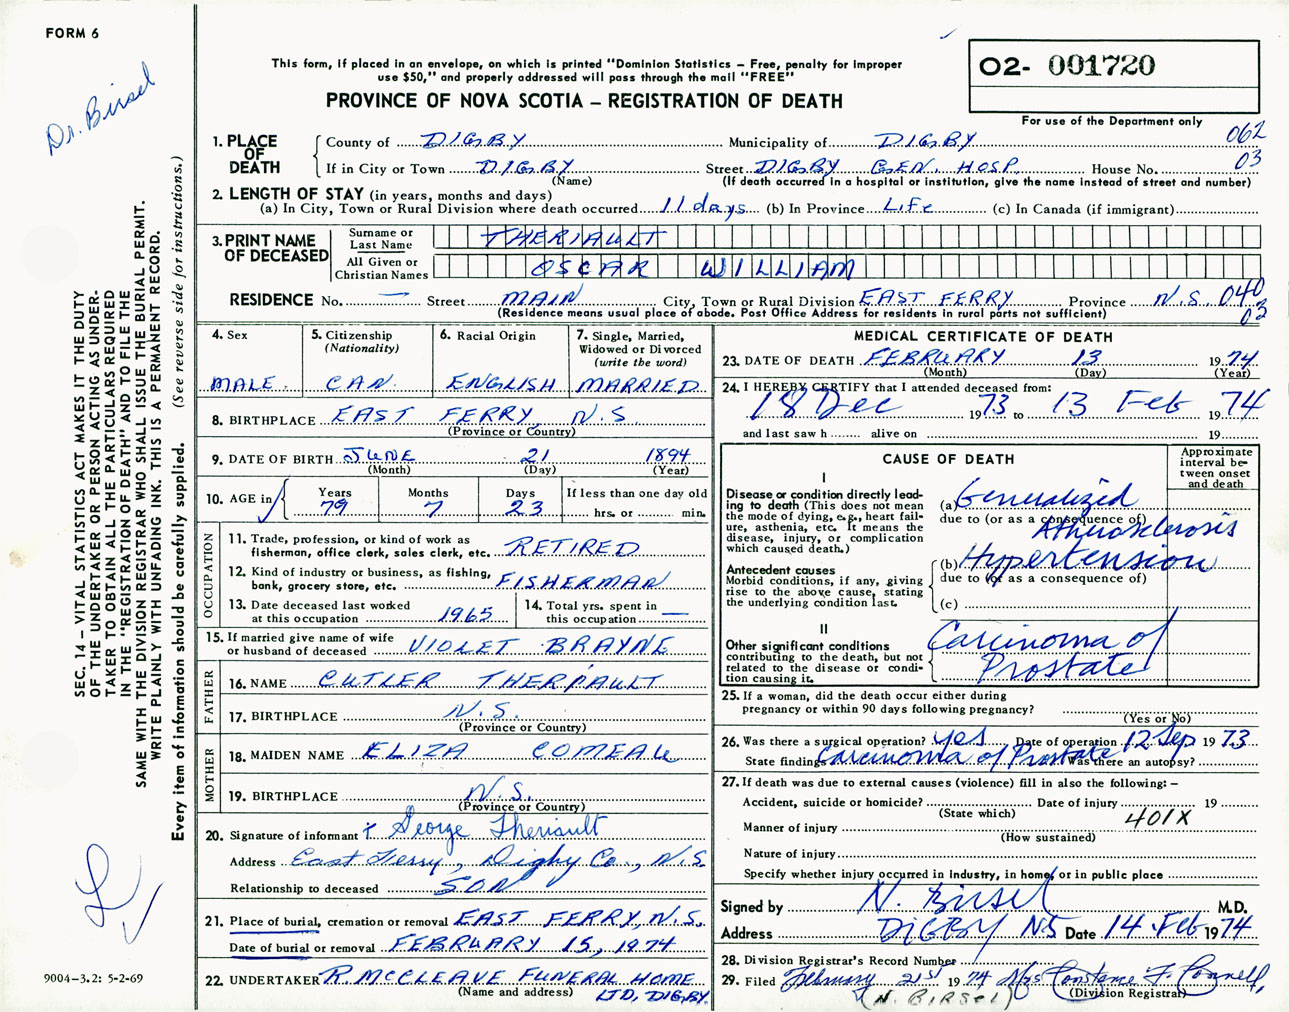 FORM 6
Dr. Birsel
This form, if placed in an envelope, on which is printed "Dominion Statistics – Free, penalty for improper
use $50," and properly addressed will pass through the mail "FREE"
PROVINCE OF NOVA SCOTIA – REGISTRATION OF DEATH
O2- 001720
For use of the Department only
062
03
1. PLACE OF DEATH
County of DIGBY Municipality of DIGBY
If in City or Town DIGBY Street DIGBY GEN. HOSP. House No.
(Name) (If death occurred in a hospital or institution, give the name instead of street and number)
2. LENGTH OF STAY (in years, months and days)
(a) In City, Town or Rural Division where death occurred 11 days (b) In Province LIFE (c) In Canada (if immigrant)
3. PRINT NAME OF DECEASED
Surname or Last Name THERIAULT
All Given or Christian Names OSCAR WILLIAM
RESIDENCE No. — Street MAIN City, Town or Rural Division EAST FERRY Province N.S. 040
03
(Residence means usual place of abode. Post Office Address for residents in rural parts not sufficient)
4. Sex
MALE
5. Citizenship
(Nationality)
CAN.
6. Racial Origin
ENGLISH
7. Single, Married,
Widowed or Divorced
(write the word)
MARRIED
8. BIRTHPLACE EAST FERRY N.S.
(Province or Country)
9. DATE OF BIRTH JUNE 21 1894
(Month) (Day) (Year)
10. AGE in
Years Months Days If less than one day old
79 7 23 hrs. or min.
OCCUPATION
11. Trade, profession, or kind of work as
fisherman, office clerk, sales clerk, etc. RETIRED
12. Kind of industry or business, as fishing,
bank, grocery store, etc. FISHERMAN
13. Date deceased last worked
at this occupation 1965
14. Total yrs. spent in
this occupation —
15. If married give name of wife
or husband of deceased VIOLET BRAYNE
FATHER
16. NAME CUTLER THERIAULT
17. BIRTHPLACE N.S.
(Province or Country)
MOTHER
18. MAIDEN NAME ELIZA COMEAU
19. BIRTHPLACE N.S.
(Province or Country)
20. Signature of informant X George Theriault
Address East Ferry, Digby Co., N.S.
Relationship to deceased SON
21. Place of burial, cremation or removal EAST FERRY, N.S.
Date of burial or removal FEBRUARY 15, 1974
22. UNDERTAKER R. MCCLEAVE FUNERAL HOME
(Name and address) LTD, DIGBY.
MEDICAL CERTIFICATE OF DEATH
23. DATE OF DEATH FEBRUARY 13 1974
(Month) (Day) (Year)
24. I HEREBY CERTIFY that I attended deceased from:
18 Dec 1973 to 13 Feb 1974
and last saw h alive on 19
CAUSE OF DEATH
Approximate
interval be-
tween onset
and death
I
Disease or condition directly lead-
ing to death (This does not mean
the mode of dying, e.g., heart fail-
ure, asthenia, etc. It means the
disease, injury, or complication
which caused death.)
(a) Generalized
due to (or as a consequence of)
Atherosclerosis
Antecedent causes
Morbid conditions, if any, giving
rise to the above cause, stating
the underlying condition last.
(b) Hypertension
due to (or as a consequence of)
(c)
II
Other significant conditions
contributing to the death, but not
related to the disease or condi-
tion causing it.
Carcinoma of
Prostate
25. If a woman, did the death occur either during
pregnancy or within 90 days following pregnancy?
(Yes or No)
26. Was there a surgical operation? yes Date of operation 12 Sep 1973
State findings Carcinoma of Prostate Was there an autopsy?
27. If death was due to external causes (violence) fill in also the following: –
Accident, suicide or homicide? Date of injury 19
(State which)
401X
Manner of injury
(How sustained)
Nature of injury
Specify whether injury occurred in industry, in home, or in public place
Signed by N. Birsel M.D.
Address DIGBY NS Date 14 Feb 1974
28. Division Registrar's Record Number
29. Filed February 21st 1974 Mrs Constance F. Connell,
(Division Registrar)
(N. BIRSEL)
SEC. 14 – VITAL STATISTICS ACT MAKES IT THE DUTY
OF THE UNDERTAKER OR PERSON ACTING AS UNDER-
TAKER TO OBTAIN ALL THE PARTICULARS REQUIRED
IN THE "REGISTRATION OF DEATH" AND TO FILE THE
SAME WITH THE DIVISION REGISTRAR WHO SHALL ISSUE THE BURIAL PERMIT.
WRITE PLAINLY WITH UNFADING INK. THIS IS A PERMANENT RECORD.
Every item of information should be carefully supplied. (See reverse side for instructions.)
9004–3.2: 5-2-69